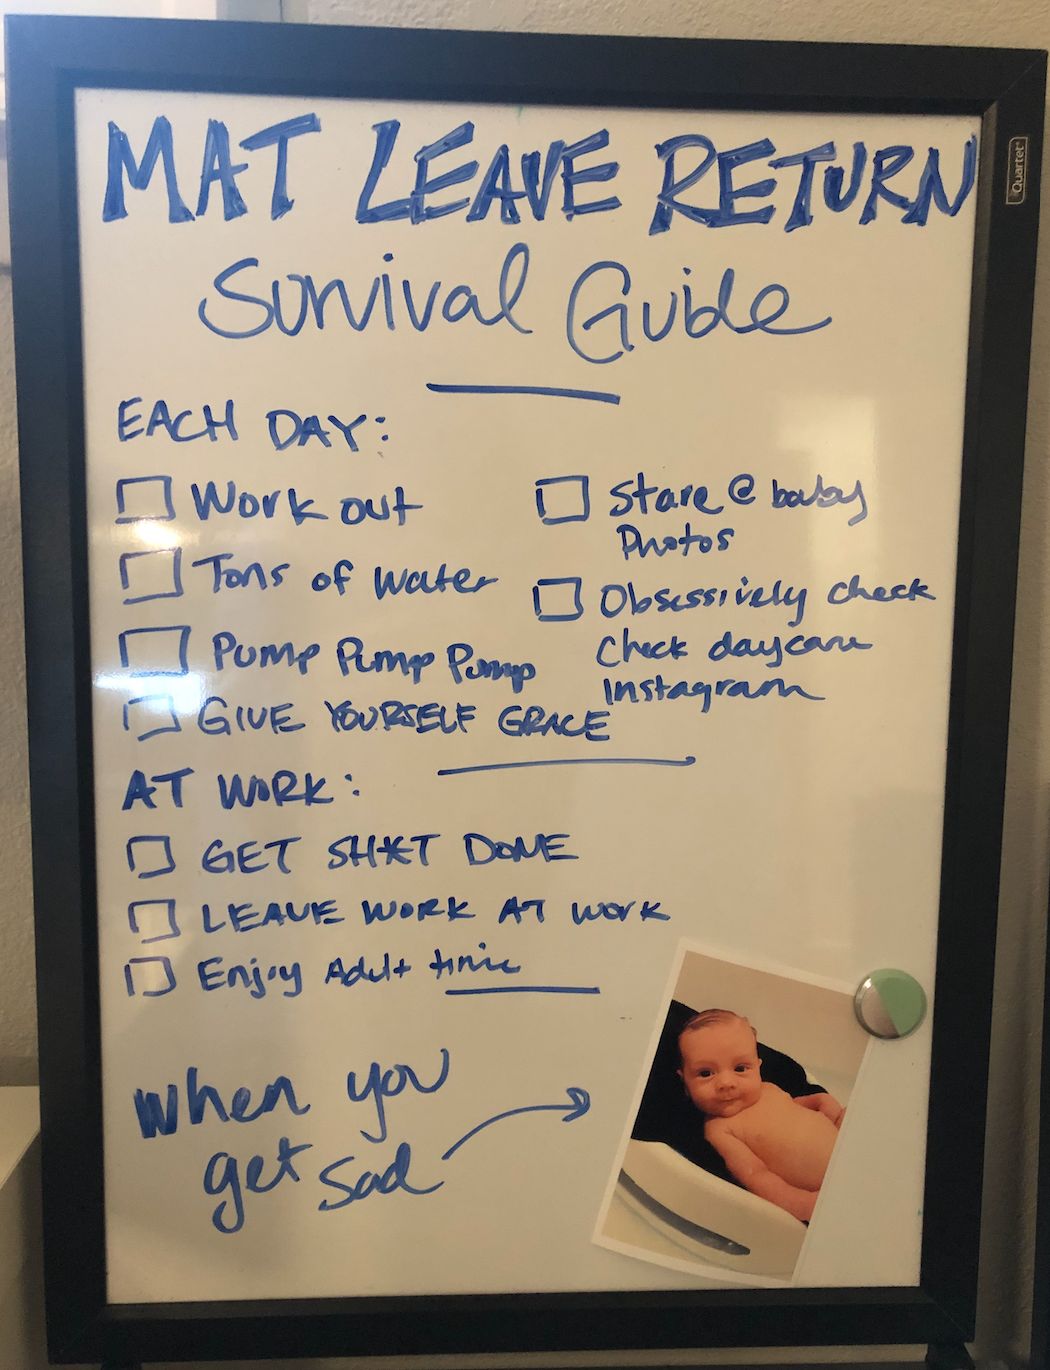 MAT LEAVE RETURN
Survival Guide
EACH DAY:
Work out
Tons of water
Pump Pump Pump
GIVE YOURSELF GRACE
Stare @ baby
Photos
Obsessively check
check daycare
Instagram
AT WORK:
GET SH*T DONE
LEAVE WORK AT WORK
Enjoy Adult time
When you
get sad
Quartet